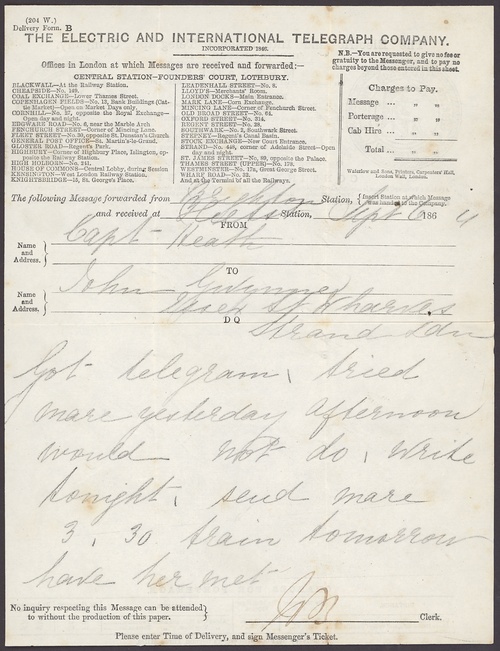 (204 W.)
Delivery Form. B
THE ELECTRIC AND INTERNATIONAL TELEGRAPH COMPANY.
INCORPORATED 1846.
Offices in London at which Messages are received and forwarded:—
CENTRAL STATION–FOUNDERS' COURT, LOTHBURY.
N.B.—You are requested to give no fee or
gratuity to the Messenger, and to pay no
charges beyond those entered in this sheet.
BLACKWALL—At the Railway Station.
CHEAPSIDE—No. 148.
COAL EXCHANGE—Lower Thames Street.
COPENHAGEN FIELDS—No. 13, Bank Buildings (Cat-
tle Market)—Open on Market Days only.
CORNHILL—No. 27, opposite the Royal Exchange—
Open day and night.
EDGWARE ROAD—No. 6, near the Marble Arch
FENCHURCH STREET—Corner of Mincing Lane.
FLEET STREET—No. 30, opposite St. Dunstan's Church
GENERAL POST OFFICE—St. Martin's-le-Grand.
GLOSTER ROAD—Regent's Park.
HIGHBURY—Corner of Highbury Place, Islington, op-
posite the Railway Station.
HIGH HOLBORN—No. 241.
HOUSE OF COMMONS—Central Lobby, during Session
KENSINGTON—West London Railway Station.
KNIGHTSBRIDGE—15, St. George's Place.
LEADENHALL STREET—No. 9.
LLOYD'S—Merchants' Room.
LONDON DOCKS—Main Entrance.
MARK LANE—Corn Exchange.
MINCING LANE—Corner of Fenchurch Street.
OLD BROAD STREET—No. 64.
OXFORD STREET—No. 314.
REGENT STREET—No. 28.
SOUTHWARK—No. 2, Southwark Street.
STEPNEY—Regent's Canal Basin.
STOCK EXCHANGE—New Court Entrance.
STRAND—No. 448, corner of Adelaide Street—Open
day and night.
ST. JAMES STREET—No. 89, opposite the Palace.
THAMES STREET (UPPER)—No. 179.
WESTMINSTER—No. 17A, Great George Street.
WHARF ROAD—No. 32.
And at the Terminal of all the Railways.
Charges to Pay.
Message ... „ „
Porterage ... „ „
Cab Hire ... „ „
Total... „ „
Waterlow and Sons, Printers, Carpenters' Hall,
London Wall, London.
The following Message forwarded from Brighton Station, {Insert Station at which Message
was handed to the Company.}
and received at Station, Sept 6 1864
FROM
Name and Address. } Capt Heath
TO
Name and Address. } John Gwynne
Essex St Wharves
DQ
Strand Ldn
Got telegram, tried
mare yesterday afternoon
would not do, write
tonight, send mare
3, 30 train tomorrow
have her met
No inquiry respecting this Message can be attended
to without the production of this paper. }
Clerk.
Please enter Time of Delivery, and sign Messenger's Ticket.